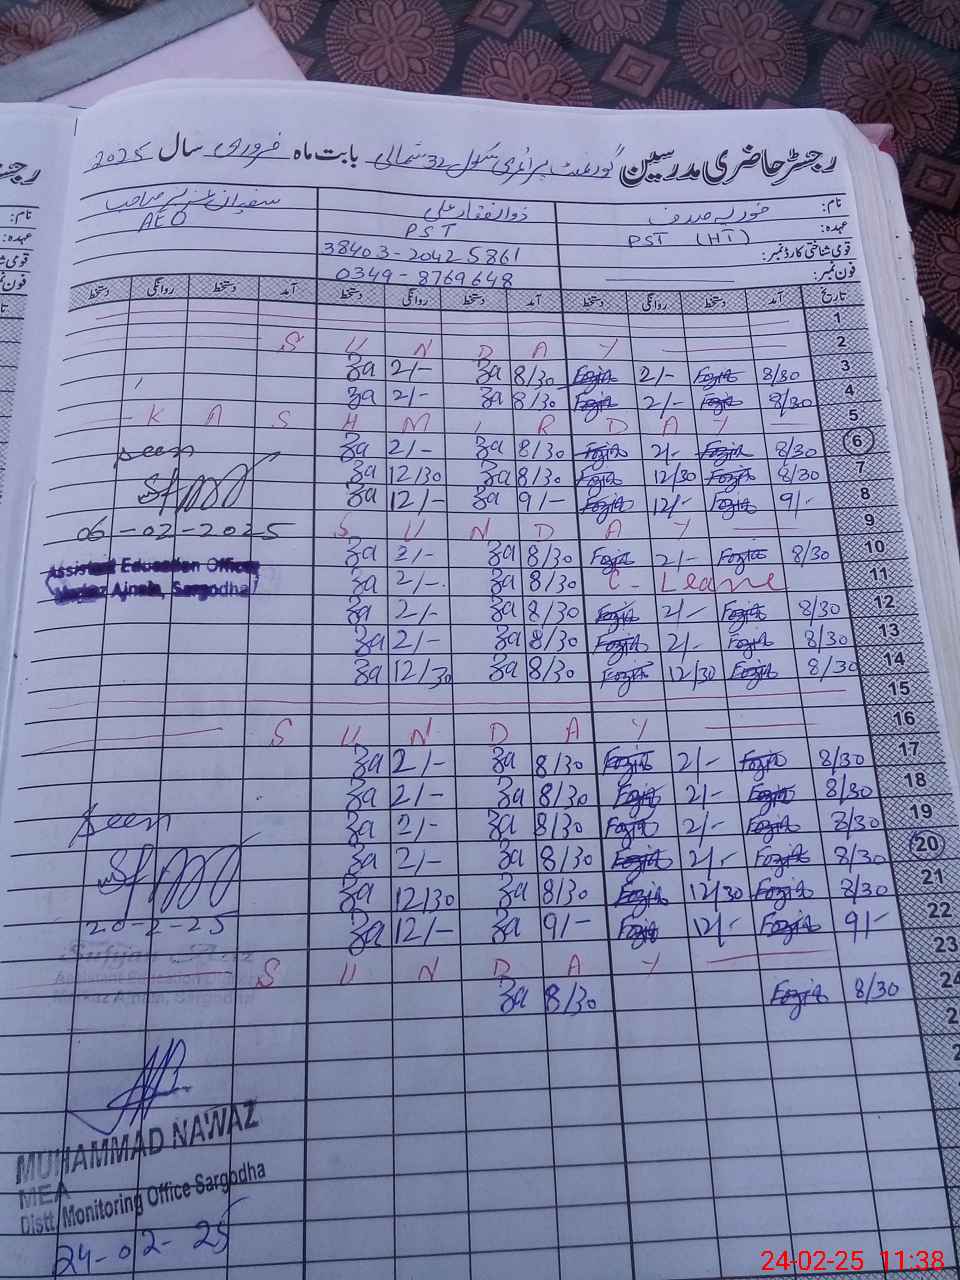 رجسٹر حاضری مدرسین گورنمنٹ پرائمری سکول 32 شمالی بابت ماہ فروری سال 2025
نام: فوزیہ صدف ذوالفقار علی سفیان عزیز صاحب
عہدہ: PST (HT) PST AEO
قومی شناختی کارڈ نمبر: 38403-20425861
فون نمبر: 0349-8769648
تاریخ آمد دستخط روانگی دستخط آمد دستخط روانگی دستخط آمد دستخط روانگی دستخط
1
2 S U N D A Y
3 8/30 Fozia 2/- Fozia 8/30 Za 2/- Za
4 8/30 Fozia 2/- Fozia 8/30 Za 2/- Za
5 K A S H M I R D A Y
6 8/30 Fozia 2/- Fozia 8/30 Za 2/- Za Seen
7 8/30 Fozia 12/30 Fozia 8/30 Za 12/30 Za
8 9/- Fozia 12/- Fozia 9/- Za 12/- Za
9 S U N D A Y 06-02-2025
10 8/30 Fozia 2/- Fozia 8/30 Za 2/- Za Assistant Education Officer
11 C- Leave 8/30 Za 2/- Za Markaz Ajnala, Sargodha
12 8/30 Fozia 2/- Fozia 8/30 Za 2/- Za
13 8/30 Fozia 2/- Fozia 8/30 Za 2/- Za
14 8/30 Fozia 12/30 Fozia 8/30 Za 12/30 Za
15
16 S U N D A Y
17 8/30 Fozia 2/- Fozia 8/30 Za 2/- Za
18 8/30 Fozia 2/- Fozia 8/30 Za 2/- Za
19 8/30 Fozia 2/- Fozia 8/30 Za 2/- Za Seen
20 8/30 Fozia 2/- Fozia 8/30 Za 2/- Za
21 8/30 Fozia 12/30 Fozia 8/30 Za 12/30 Za
22 9/- Fozia 12/- Fozia 9/- Za 12/- Za 20-2-25
23 S U N D A Y
Assistant Education Officer
Markaz Ajnala, Sargodha
24 8/30 Fozia 8/30 Za
MUHAMMAD NAWAZ
MEA
Distt. Monitoring Office Sargodha
24-02-25
24-02-25 11:38